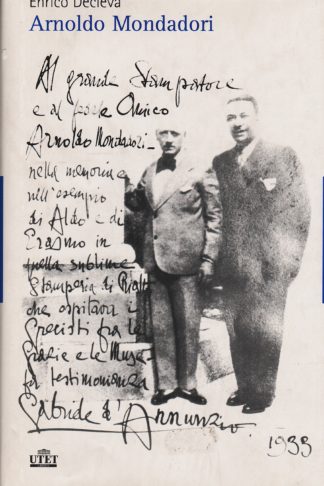 Enrico Decleva
Arnoldo Mondadori
Al grande Stampatore
e al fido Amico
Arnoldo Mondadori -
nella memoria e
nell'esempio
di Aldo e di
Erasmo in
quella sublime
Stamperia di Rialto
che ospitava i
Grecisti fra le
Grazie e le Muse
fa testimonianza
Gabriele d'Annunzio.
1933
UTET